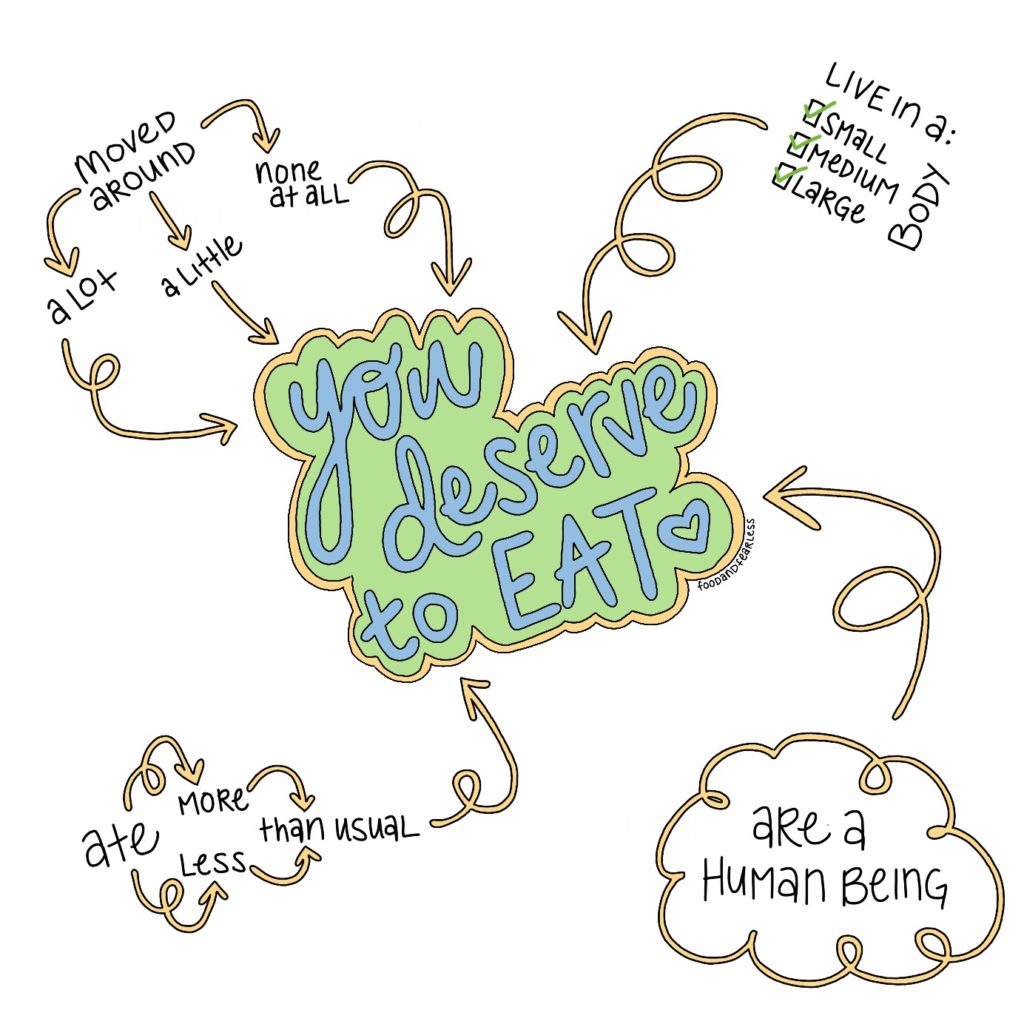 MOVED
AROUND
none
at all
a lot
a little
LIVE in a:
SMALL
MEDIUM
LARGE
BODY
you
deserve
to EAT
foodandfearless
ate
MORE
LESS
than usual
are a
HUMAN BEING